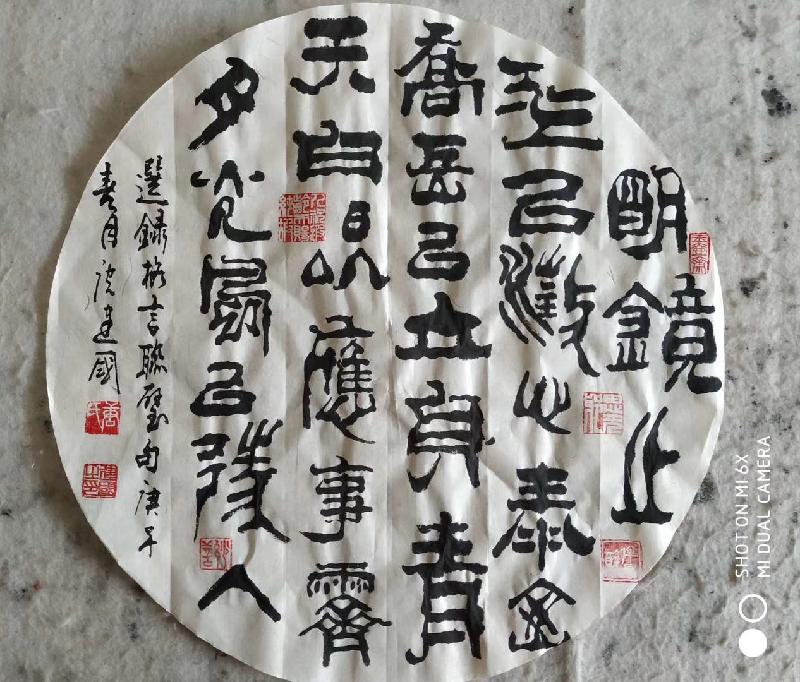 明鏡止
水以澂心泰山
喬岳以立身青
天白日以應事霽
月光風以待人
選錄格言聯璧句庚子
春月唐建國
SHOT ON MI 6X
MI DUAL CAMERA